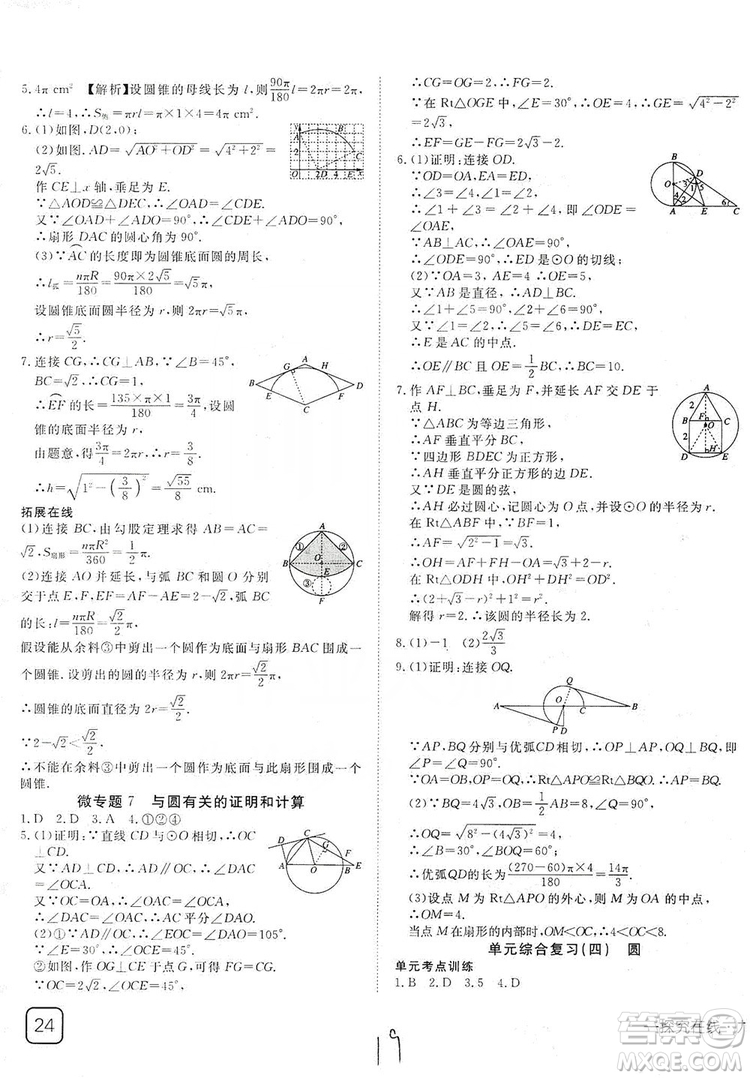 5. 4π cm² 【解析】设圆锥的母线长为 l,则90π/180 l=2πr=2π,
∴l=4,∴S侧=πrl=π×1×4=4π(cm²).
6. (1)如图,D(2,0);
(2)如图,AD=√(AO²+OD²)=√(4²+2²)=
2√5.
作 CE⊥x 轴,垂足为 E.
∵△AOD≌△DEC,∴∠OAD=∠CDE.
又∵∠OAD+∠ADO=90°,∴∠CDE+∠ADO=90°,
∴扇形 DAC 的圆心角为 90°.
(3)∵AC的长度即为圆锥底面圆的周长,
l弧=nπR/180=90π×2√5/180=√5π.
设圆锥底面圆半径为 r,则2πr=√5π,
∴r=√5/2.
7. 连接 CG,∴CG⊥AB,∵∠B=45°,
BC=√2,∴CG=1.
∴EF的长=135×π×1/180=3π/4,设圆
锥的底面半径为 r,
由题意,得3π/4=2πr,∴r=3/8,
∴h=√(1²-(3/8)²)=√55/8.
拓展在线
(1)连接 BC,由勾股定理求得 AB=AC=
√2,S扇形=nπR²/360=1/2π.
(2)连接 AO 并延长,与弧 BC 和⊙O 分别
交于点 E,F,EF=AF-AE=2-√2,弧 BC
的长:l=nπR/180=√2/2π.
假设能从余料③中剪出一个圆作为底面与扇形 BAC 围成
一个圆锥. 设剪出的圆的半径为 r,则 2πr=√2/2π,
∴圆锥的底面直径为 2r=√2/2.
∵2-√2<√2/2,
∴不能在余料③中剪出一个圆作为底面与此扇形围成一个
圆锥.
微专题 7 与圆有关的证明和计算
1. D 2. D 3. A 4. ①②④
5. (1)证明:∵直线 CD 与⊙O 相切,∴OC⊥CD.
又∵AD⊥CD,∴AD∥OC,∴∠DAC
=∠OCA.
又∵OC=OA,∴∠OAC=∠OCA.
∴∠DAC=∠OAC,∴AC平分∠DAO.
(2)①∵AD∥OC,∴∠EOC=∠DAO=105°,
∵∠E=30°,∴∠OCE=45°.
②过点 O 作 OG⊥CE 于点 G,则 CG=FG.
∵OC=2√2,∠OCE=45°,∴CG=OG,
∴CG=OG=2,∴FG=2.
∵在 Rt△OGE 中,∠E=30°,∴OE=4,∴GE=√(4²-2²)=
2√3,
∴EF=GE-FG=2√3-2.
6. (1)证明:连接 OD.
∵OD=OA,EA=ED,
∴∠3=∠4,∠1=∠2,
∴∠1+∠3=∠2+∠4,即∠ODE=
∠OAE,
∵AB⊥AC,∴∠OAE=90°,
∴∠ODE=90°,∴ED 是⊙O的切线;
(2)∵OA=3,∴AB=6,
又∵AB是直径,∴AD⊥BC,
∴∠1+∠5=90°,∠2+∠6=90°,
又∵∠1=∠2,∴∠5=∠6,∴DE=EC,
∴E 是 AC 的中点.
∴OE∥BC,且OE=1/2BC=5.
7. 作 AF⊥BC,垂足为 F,并延长 AF 交 DE 于
点 H.
∵△ABC 为等边三角形,
∴AF 垂直平分 BC,
∵四边形 BDEC 为正方形,
∴AH 垂直平分正方形的边 DE.
又∵DE 是圆的弦,
∴AH 必过圆心,记圆心为 O 点,并设⊙O 的半径为 r.
在 Rt△ABF 中,∵∠BAF=30°,
∴AF=√(2²-1)=√3.
∴OH=AF+FH-OA=√3+2-r.
在 Rt△ODH 中,OH²+DH²=OD².
∴(2+√3-r)²+1²=r².
解得 r=2. ∴该圆的半径长为 2.
8. (1)-1 (2)2√3/3
9. (1)证明:连接 OQ.
∵AP,BQ 分别与优弧CD 相切,∴OP⊥AP,OQ⊥BQ,即
∠P=∠Q=90°.
∵OA=OB,OP=OQ,∴Rt△APO≌Rt△BQO,∴AP=BQ.
(2)∵BQ=4√3,OB=1/2AB=8,∠Q=90°,
∴OQ=√(8²-(4√3)²)=4,∴∠BOQ=60°.
∵OQ=1/2OB,∴∠B=30°,∠BOQ=60°,
∴优弧QD的长=(270-60)π×4/180=14π/3.
(3)设点 M 为 Rt△APO 的外心,则 M 为 OA 的中点,
∴OM=4.
当点 M 在扇形的内部时,OM<OC,∴4<OC<8.
单元综合复习(四) 圆
单元考点训练
1. B 2. D 3. 5 4. D
24
19
探究在线